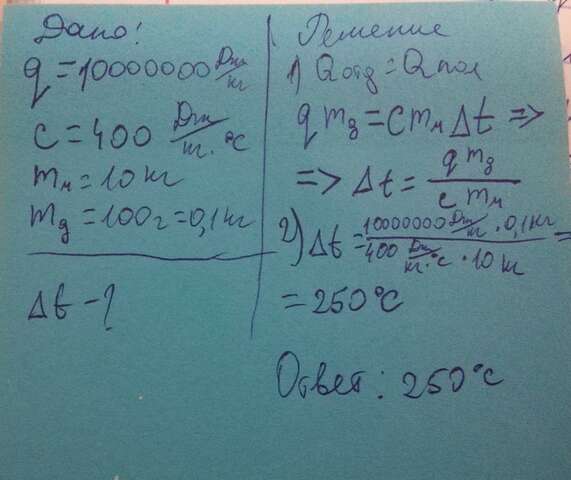 Дано!
q = 10000000 Дж/кг
c = 400 Дж/кг·°C
mм = 10 кг
mд = 100г = 0,1 кг
Δt - ?
Решение
1) Qотд = Qпол
q mд = c mм Δt =>
=> Δt = q mд / c mм
2) Δt = 10000000 Дж/кг · 0,1 кг / 400 Дж/кг·°C · 10 кг =
= 250°C
Ответ: 250°C